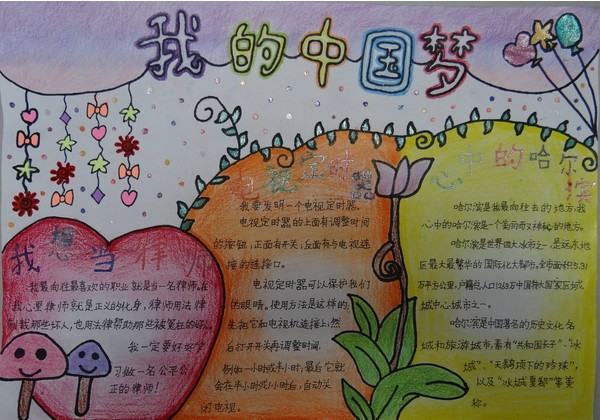 我的中国梦
我想当律师
我最向往最喜欢的职业就是当一名律师。在
我心里律师就是正义的化身,律师用法律
制裁那些坏人,也用法律帮助那些被冤枉的好人。
我一定要好好学
习做一名公平公
正的律师!
电视定时器
我要发明一个电视定时器。
电视定时器的上面有调整时间
的按钮,正面有开关,反面有与电视连
接的连接口。
电视定时器可以保护我们
的眼睛。使用方法是这样的:
先把它和电视机连接上,然
后打开开关再调整时间,
例如一小时或半小时,最后它就
会在半小时或一小时后,自动关
闭电视。
心中的哈尔
滨
哈尔滨是我最向往去的地方,我
心中的哈尔滨是个美丽而又神秘的地方。
哈尔滨是世界四大冰雪之一,是远东地
区最大最繁华的国际化大都市。全市面积5.31
万平方公里,户籍总人口
城中心城市之一。
哈尔滨是中国著名的历史文化名
城和旅游城市,素有“共和国长子”、“冰
城”、“天鹅项下的珍珠”,
以及“冰城夏都”等美
称。